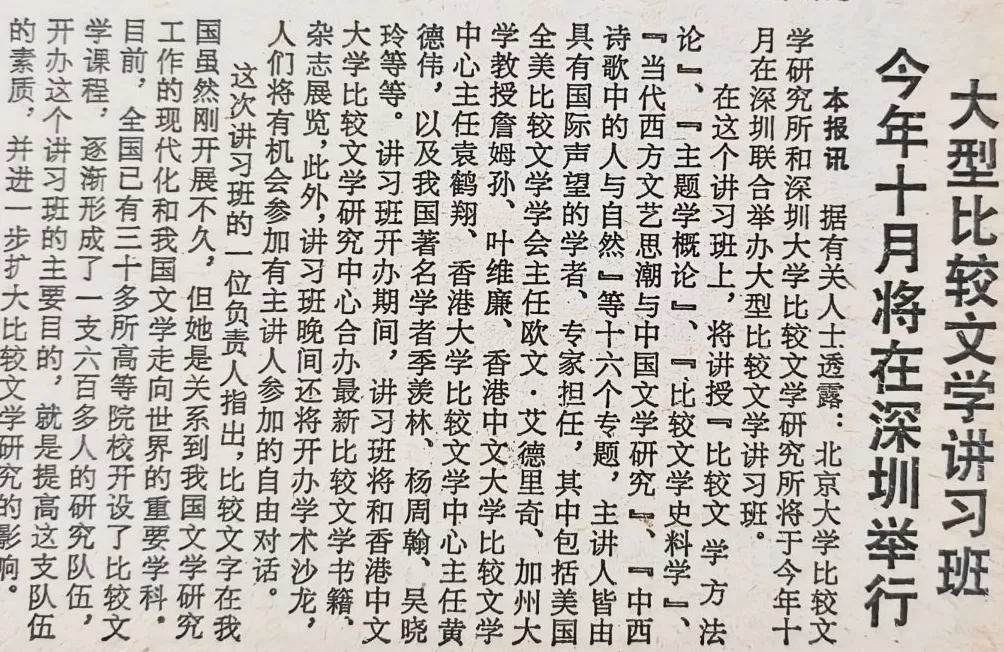 大型比较文学讲习班
今年十月将在深圳举行
本报讯 据有关人士透露：北京大学比较文
学研究所和深圳大学比较文学研究所将于今年十
月在深圳联合举办大型比较文学讲习班。
在这个讲习班上，将讲授『比较文学方法
论』、『主题学概论』、『比较文学史料学』、
『当代西方文艺思潮与中国文学研究』、『中西
诗歌中的人与自然』等十六个专题，主讲人皆由
具有国际声望的学者、专家担任，其中包括美国
全美比较文学学会主任欧文·艾德里奇、加州大
学教授詹姆孙、叶维廉、香港中文大学比较文学
中心主任袁鹤翔、香港大学比较文学中心主任黄
德伟，以及我国著名学者季羡林、杨周翰、吴晓
玲等等。讲习班开办期间，讲习班将和香港中文
大学比较文学研究中心合办最新比较文学书籍、
杂志展览，此外，讲习班晚间还将开办学术沙龙，
人们将有机会参加有主讲人参加的自由对话。
这次讲习班的一位负责人指出，比较文字在我
国虽然刚开展不久，但她是关系到我国文学研究
工作的现代化和我国文学走向世界的重要学科。
目前，全国已有三十多所高等院校开设了比较文
学课程，逐渐形成了一支六百多人的研究队伍，
开办这个讲习班的主要目的，就是提高这支队伍
的素质，并进一步扩大比较文学研究的影响。